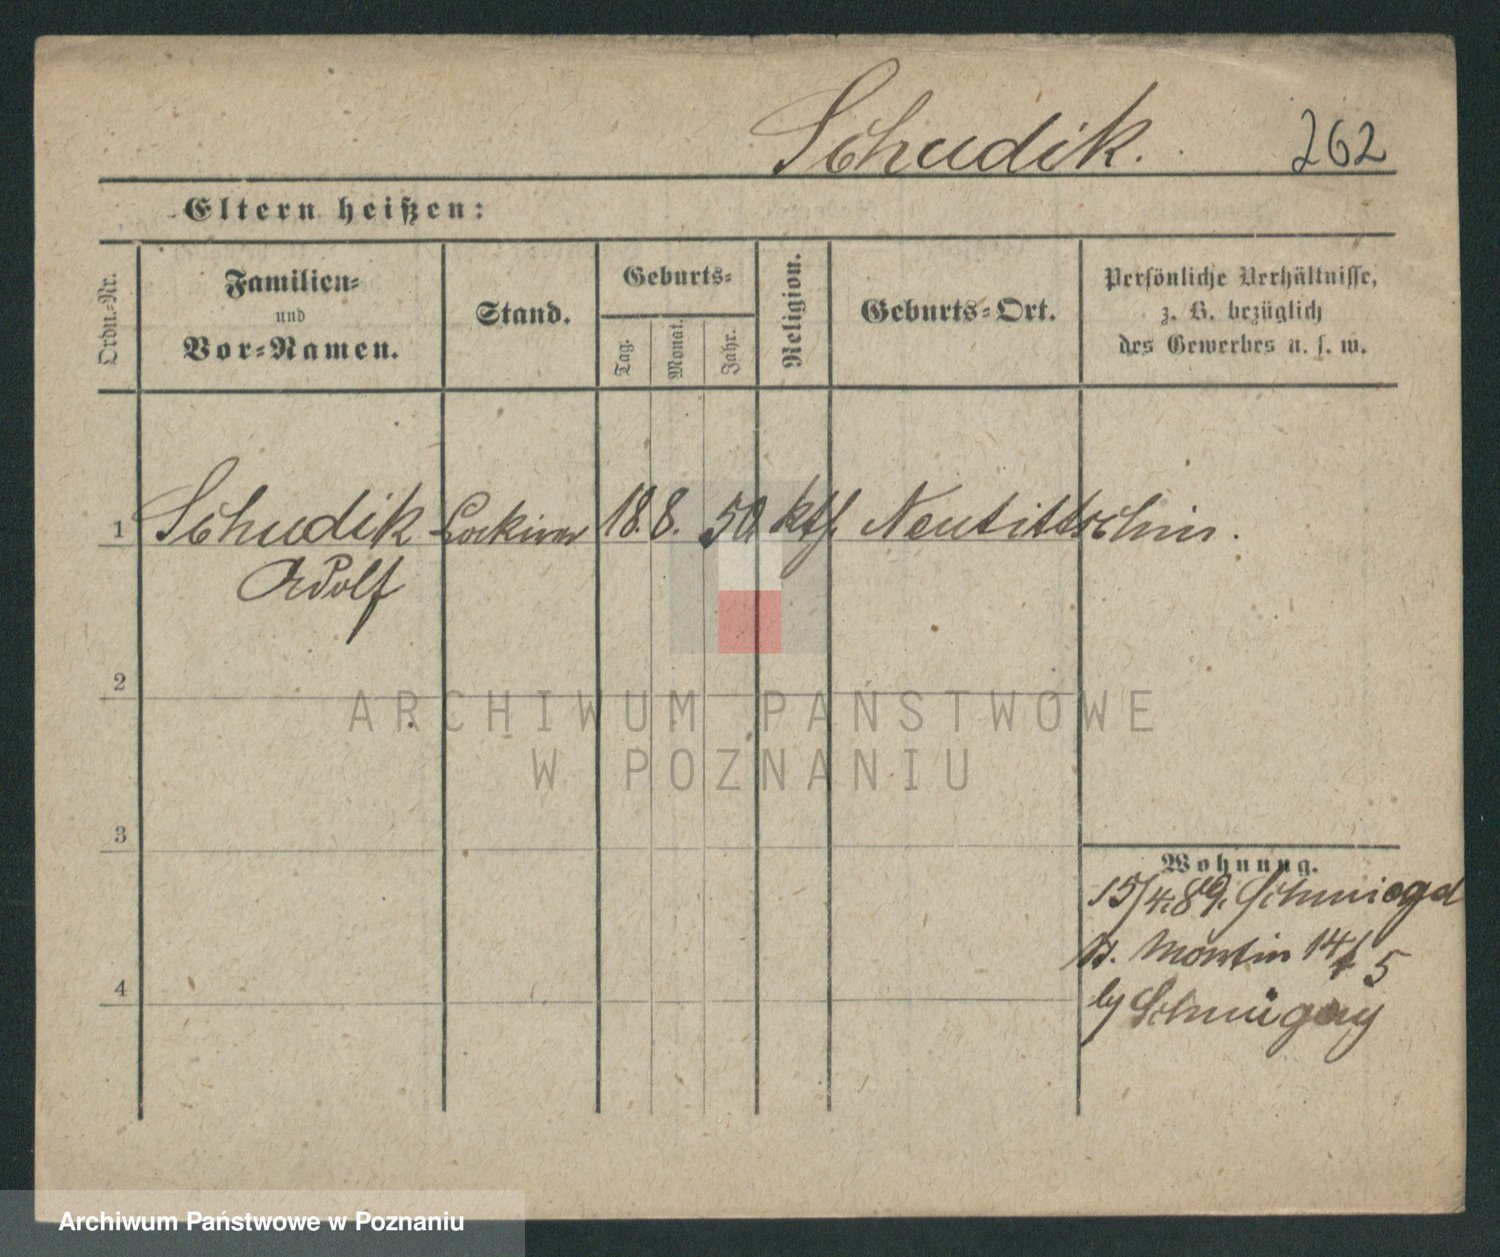 Schudik. 262
Eltern heißen:
Ordn.-Nr.
Familien-
und
Vor-Namen.
Stand.
Geburts-
Tag.
Monat.
Jahr.
Religion.
Geburts-Ort.
Persönliche Verhältnisse,
z. B. bezüglich
des Gewerbes u. s. w.
1 Schudik Lackirer 18. 8. 50 kth. Neutittschin.
Adolf
2
ARCHIWUM PAŃSTWOWE
W POZNANIU
3
Wohnung.
15/4.89.
St. Martin 14/5
by
4
Archiwum Państwowe w Poznaniu